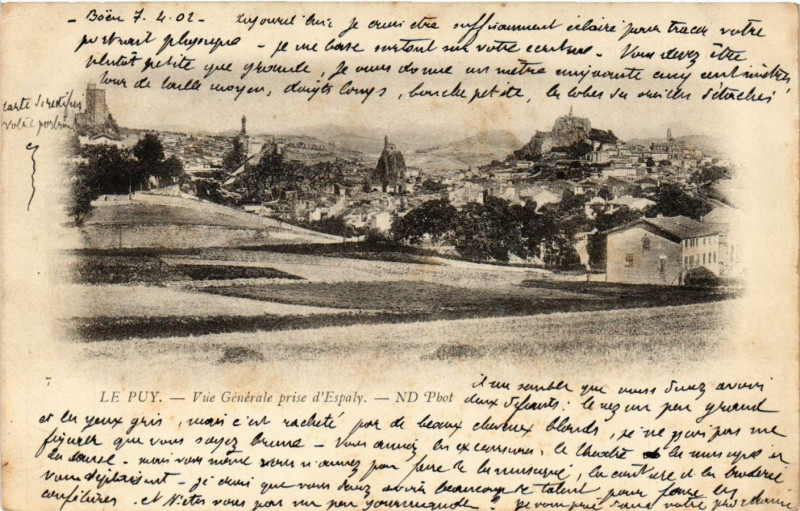 - Böen 7. 4. 02 - Aujourd'hui je crois être suffisamment éclairé pour tracer votre
portrait physique - je me base surtout sur votre écriture - Vous devez être
plutôt petite que grande, je vous donne un mètre cinquante cinq centimètres,
tour de taille moyen, doigts longs, bouche petite, les lobes des oreilles détachés
carte
votre portrait
7
LE PUY. — Vue Générale prise d'Espaly. — ND Phot
il me semble que vous devez avoir
deux défauts : le nez un peu grand
et les yeux gris, mais c'est racheté par de beaux cheveux blonds, je ne puis pas me
figurer que vous soyez brune - Vous aimez les excursions, le théâtre, la musique et
la danse - mais vous même vous n'aimez pas faire de la musique, la couture et la broderie
vous déplaisent - je crois que vous devez avoir beaucoup de talent pour faire les
confitures. et N'êtes vous pas un peu gourmande ? je vous prie dans votre prochaine